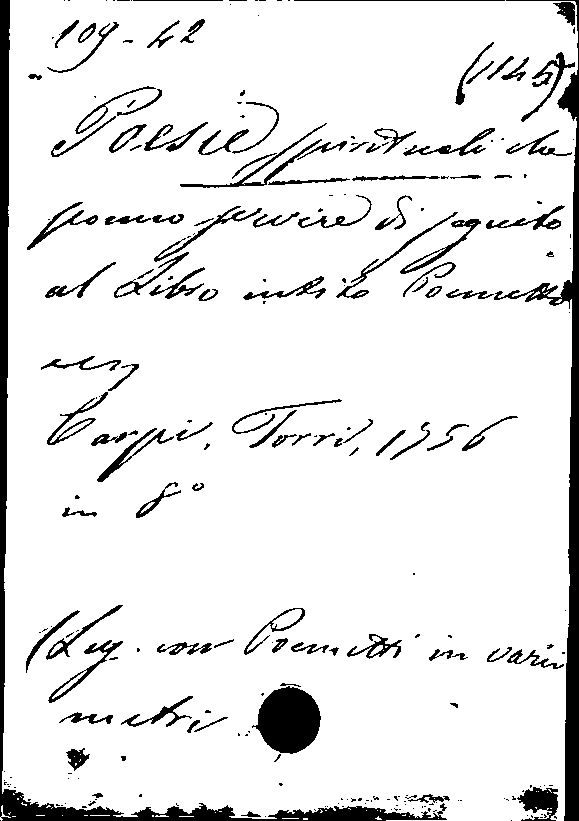 109-42
(1145)
Poesie spirituali che
ponno servire di seguito
al Libro intito Poemetti
ecc
Carpi, Torri, 1756
in 8°
(Leg. con Poemetti in varii
metri